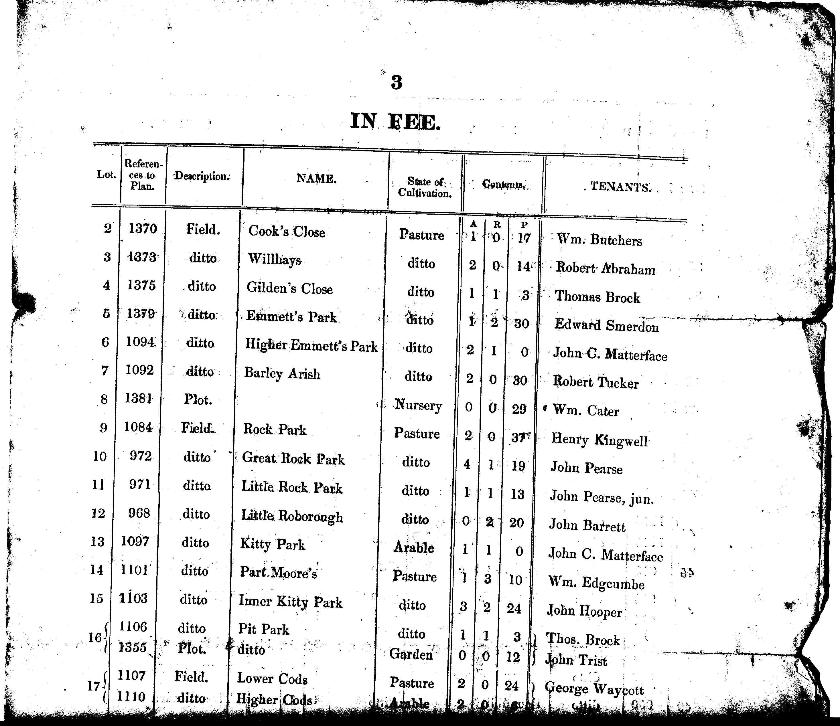 3
IN FEE.
Lot. References to Plan. Description. NAME. State of Cultivation. Contents. TENANTS.
A R P
2 1370 Field. Cook's Close Pasture 1 0 17 Wm. Butchers
3 1373 ditto Willhays ditto 2 0 14 Robert Abraham
4 1375 ditto Gilden's Close ditto 1 1 3 Thomas Brock
5 1379 ditto Emmett's Park ditto 1 2 30 Edward Smerdon
6 1094 ditto Higher Emmett's Park ditto 2 1 0 John C. Matterface
7 1092 ditto Barley Arish ditto 2 0 30 Robert Tucker
8 1381 Plot. Nursery 0 0 29 Wm. Cater
9 1084 Field. Rock Park Pasture 2 0 37 Henry Kingwell
10 972 ditto Great Rock Park ditto 4 1 19 John Pearse
11 971 ditto Little Rock Park ditto 1 1 13 John Pearse, jun.
12 968 ditto Little Roborough ditto 0 2 20 John Barrett
13 1097 ditto Kitty Park Arable 1 1 0 John C. Matterface
14 1101 ditto Part Moore's Pasture 1 3 10 Wm. Edgcumbe
15 1103 ditto Inner Kitty Park ditto 3 2 24 John Hooper
16 1106 ditto Pit Park ditto 1 1 3 Thos. Brock
1355 Plot. ditto Garden 0 0 12 John Trist
17 1107 Field. Lower Cods Pasture 2 0 24 George Waycott
1110 ditto Higher Cods Arable 2 0